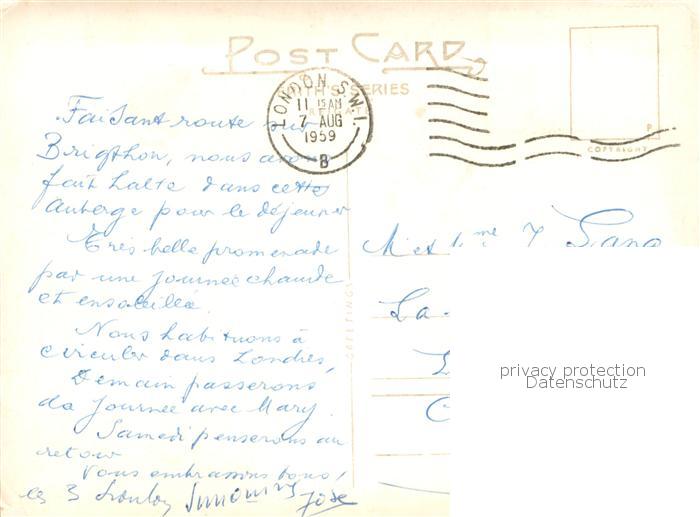 POST CARD
SERIES
LONDON. S.W.1.
11 15 AM
7 AUG
1959
B
P
COPYRIGHT
Faisant route sur
Brigthon, nous avons
fait halte dans cette
auberge pour le déjeuner
Très belle promenade
par une journée chaude
et ensoleillée.
Nous habituons à
circuler dans Londres,
Demain passerons
la journée avec Mary.
Samedi penserons au
retour
Vous embrassons tous,
les 3
José
GREETINGS
M et Mme
La
privacy protection
Datenschutz